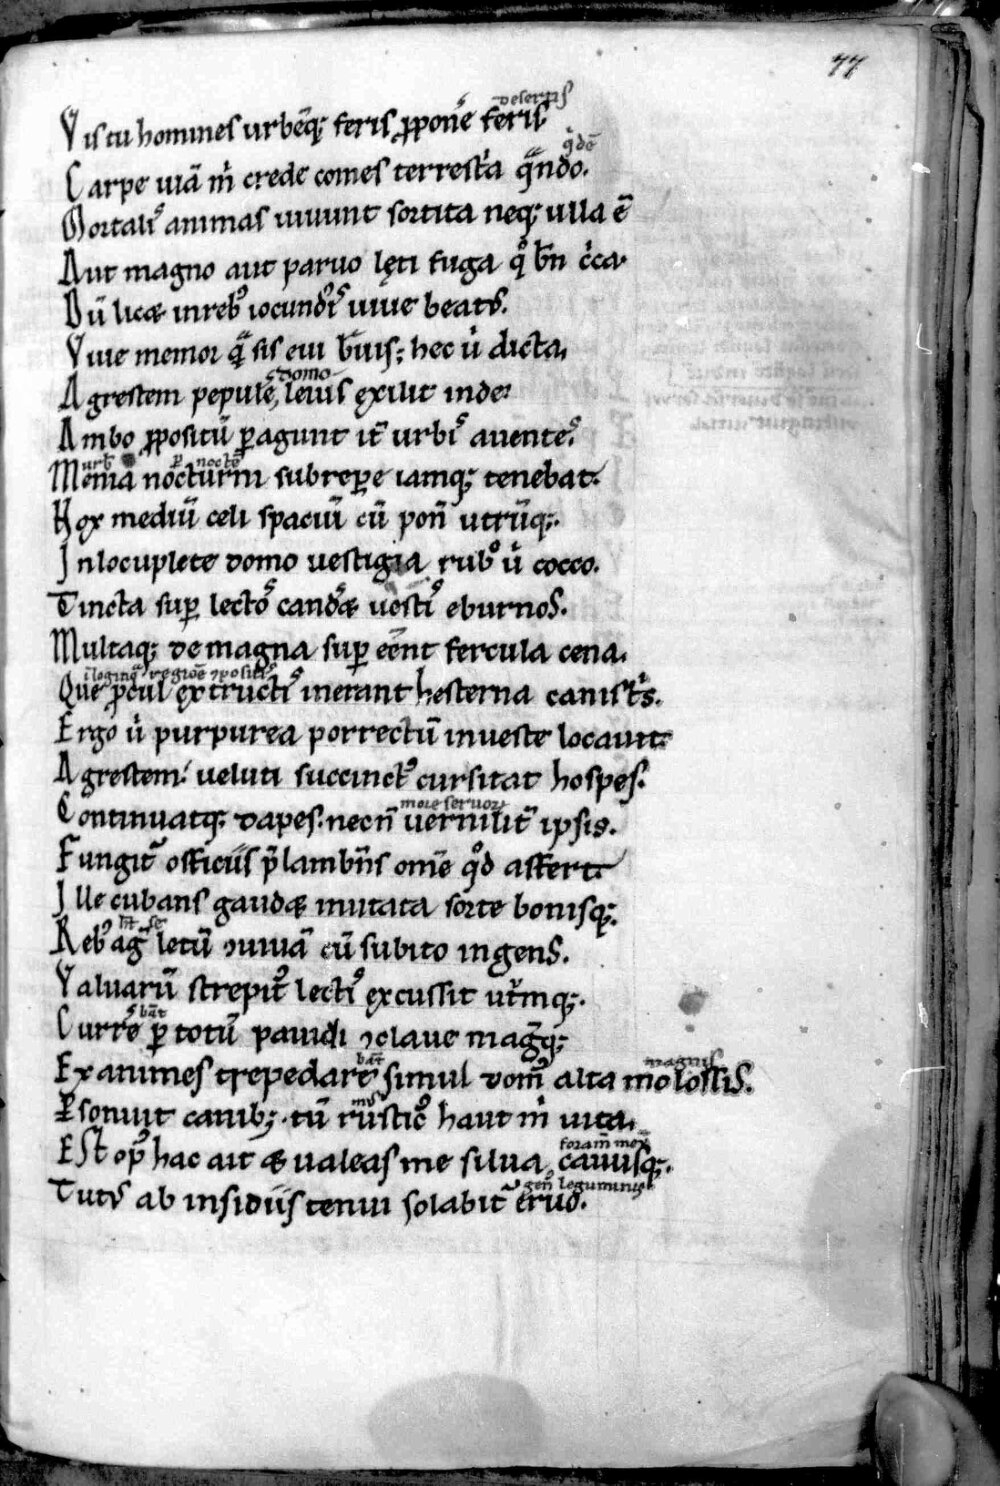 77
desertis
Vis tu homines urbēq; feris ꝓponē feris
q̇dē
Carpe uiā ṁ crede comes terrest̓a qͣndo.
Mortalˀ animas uiuunt sortita neq; ulla ē
Aut magno aut paruo lęti fuga q̊ bn̄ c̓ca.
Dū licꝫ in rebˀ iocundˀ uiue beatˀ.
Viue memor qͣ sis eui b̓uis; hec u̇ dicta,
domo
Agrestem pepulē, leuis exilit inde:
Ambo ꝓpositū ꝑagunt it̄ urbˀ auentēˢ.
urbˀ ꝑ noctē
Menia nocturni subreꝑe iamq; tenebat.
Nox mediū celi spaciū cū ponˉ utrūq;.
In locuplete domo uestigia rubˀ u̇ cocco.
Tincta suꝑ lectoˢ cand̓ꝫ uestˀ eburnos.
Multaq; de magna suꝑ eēnt fercula cena.
ī loginq̇ regiōe ꝯpositˀ
Que ꝓcul extructˀ inerant hesterna canist̓s.
Ergo u̇ purpurea porrectū in ueste locauit.
Agrestem: ueluti succinctˀ cursitat hospes.
more seruoꝝ
Continuatq; dapes. necn̄ uernilit̄ ipsis.
Fungit̄ officiis p̄lambn̄s omē q̊d affert.
Ille cubans gaudꝫ mutata sorte bonisq;.
Rebˀ agˉ letū ꝯuiuā cū subito ingens.
Valuarū strepitˀ lectˀ excussit ut̓mq;.
bāt
Currē ꝑ totū pauidi ꝯclaue magˉq;
bāt magnis
Exanimes trepedarē simul domˀ alta molossis.
Ꝑsonuit canibꝫ. tū rusticˀ haut ṁ uita.
foram̄
Est opˀ hac ait ꝫ ualeas me silua, cauusq;.
gen̄ leguminis
Tutˀ ab insidiis tenui solabit̄ eruo.